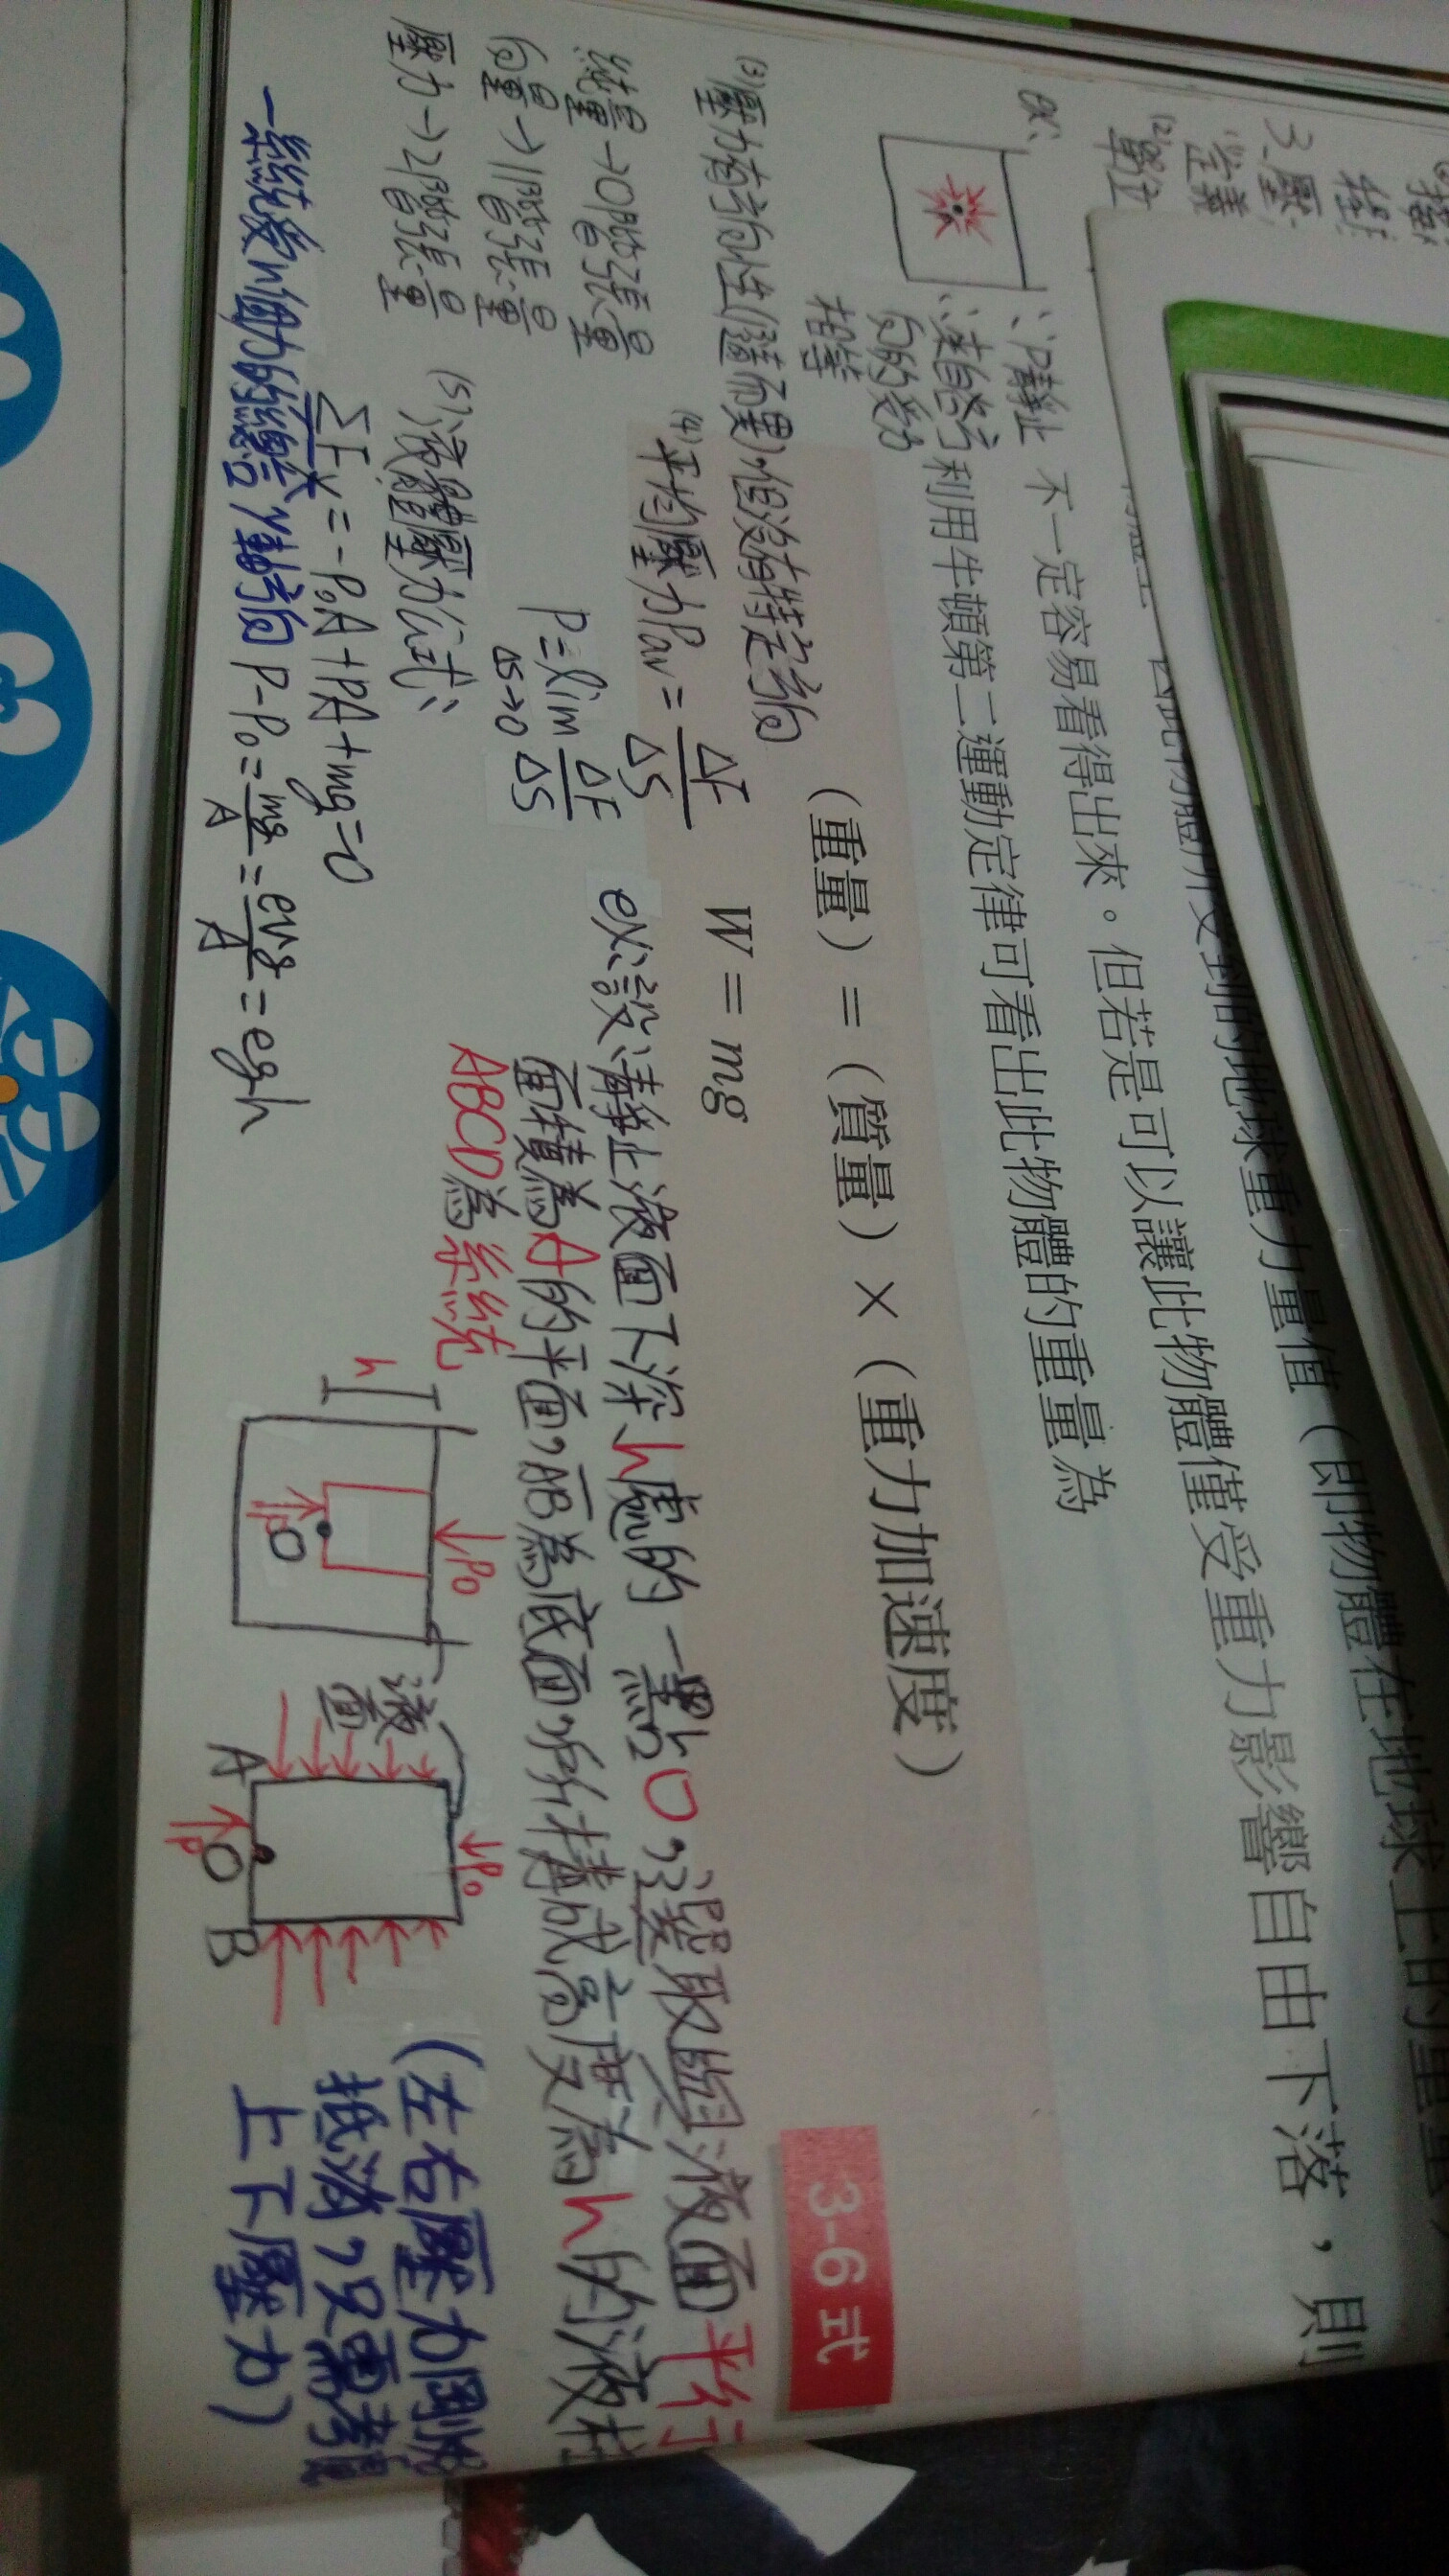 3.壓
定義
(2)單位
ex:
∵P靜止
∴來自各方
向的受力
相等
(3)壓力有方向性(隨面異),但沒有特定方向
純量→0階張量
向量→1階張量
壓力→2階張量
(4)平均壓力Pav=ΔF/ΔS
P=lim ΔS→0 ΔF/ΔS
(5)液體壓力公式:
ΣFy=-P₀A+PA+mg=0
一系統受n個力的總合 y軸方向 P-P₀=mg/A=ρVg/A=ρgh
到的地球重力量值(即物體在地球上的重量)
不一定容易看得出來。但若是可以讓此物體僅受重力影響自由下落,則
利用牛頓第二運動定律可看出此物體的重量為
(重量)=(質量)×(重力加速度)
W = mg
3-6 式
ex:設靜止液面下深h處的一點O,選取與液面平行
面積為A的平面,AB為底面,所構成高度為h的液柱
ABCD為系統
h
P₀
P
O
液面
P₀
A
O
B
P
(左右壓力剛好
抵消,只需考慮
上下壓力)